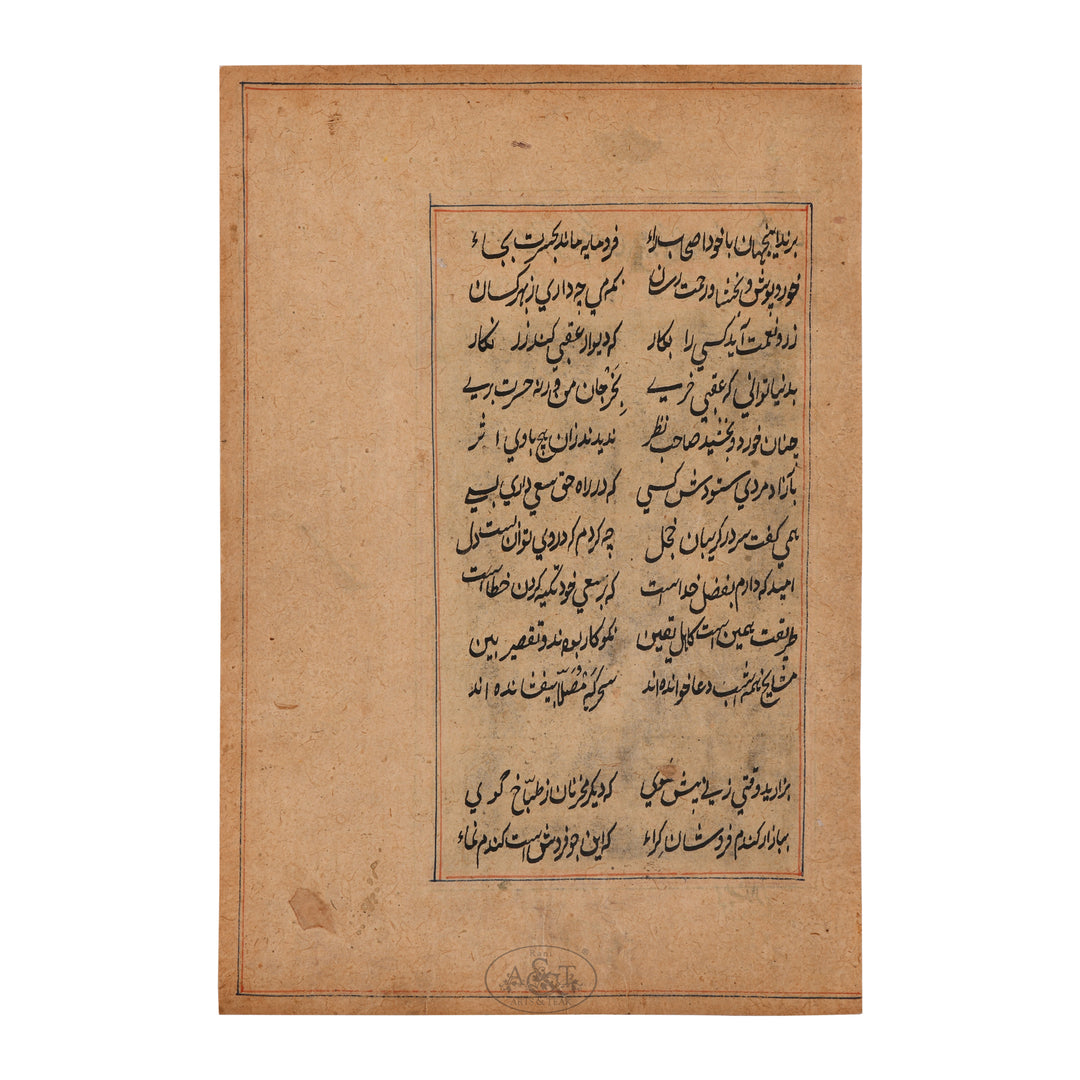 برند اینجهان با خود اصحاب راء فرومایه ماند بحسرت بجاء
خور و پوش و بخشا و رحت رسان نگه می چه داری ز بهر کسان
زر و نعمت آید کسی را بکار که دیوار عقبی کند زر نکار
بدنیا توانی که عقبی خریے بخر جان من ورنه حسرت بریے
چنان خورد و بخشید صاحب نظر ندیدند زان هیچ باوی اثر
بآزاد مردی ستودش کسی که در راه حق سعی داری بسے
همی گفت سر در گریبان خجل چه کردم که دروی توان بست دل
امید که دارم بفضل خداست که بر سعی خود تکیه کردن خطاست
طریقت همین است کاهل یقین نکوکار بوده‌اند و تقصیر بین
مشایخ همه شب دعا خوانده اند سحرکه مُصَلّا بیفشانده اند
بزارید وقتی زنے پیش شوی که دیکر مخر نان ز طبّاخ گوی
ببازار کندم فروشان کراء که این جو فروش است کندم نماء
Rani
A&T
ARTS & TEAK